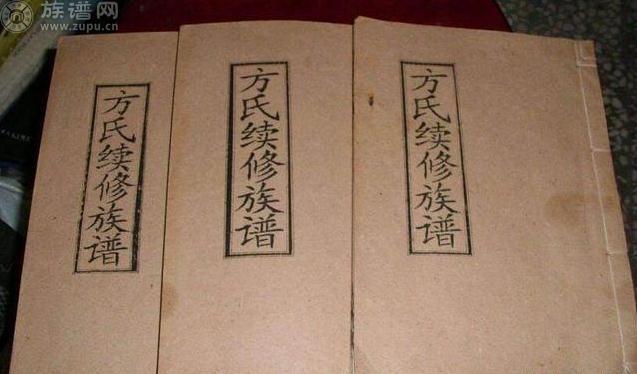 族谱网
www.zupu.cn
方氏续修族谱
方氏续修族谱
方氏续修族谱